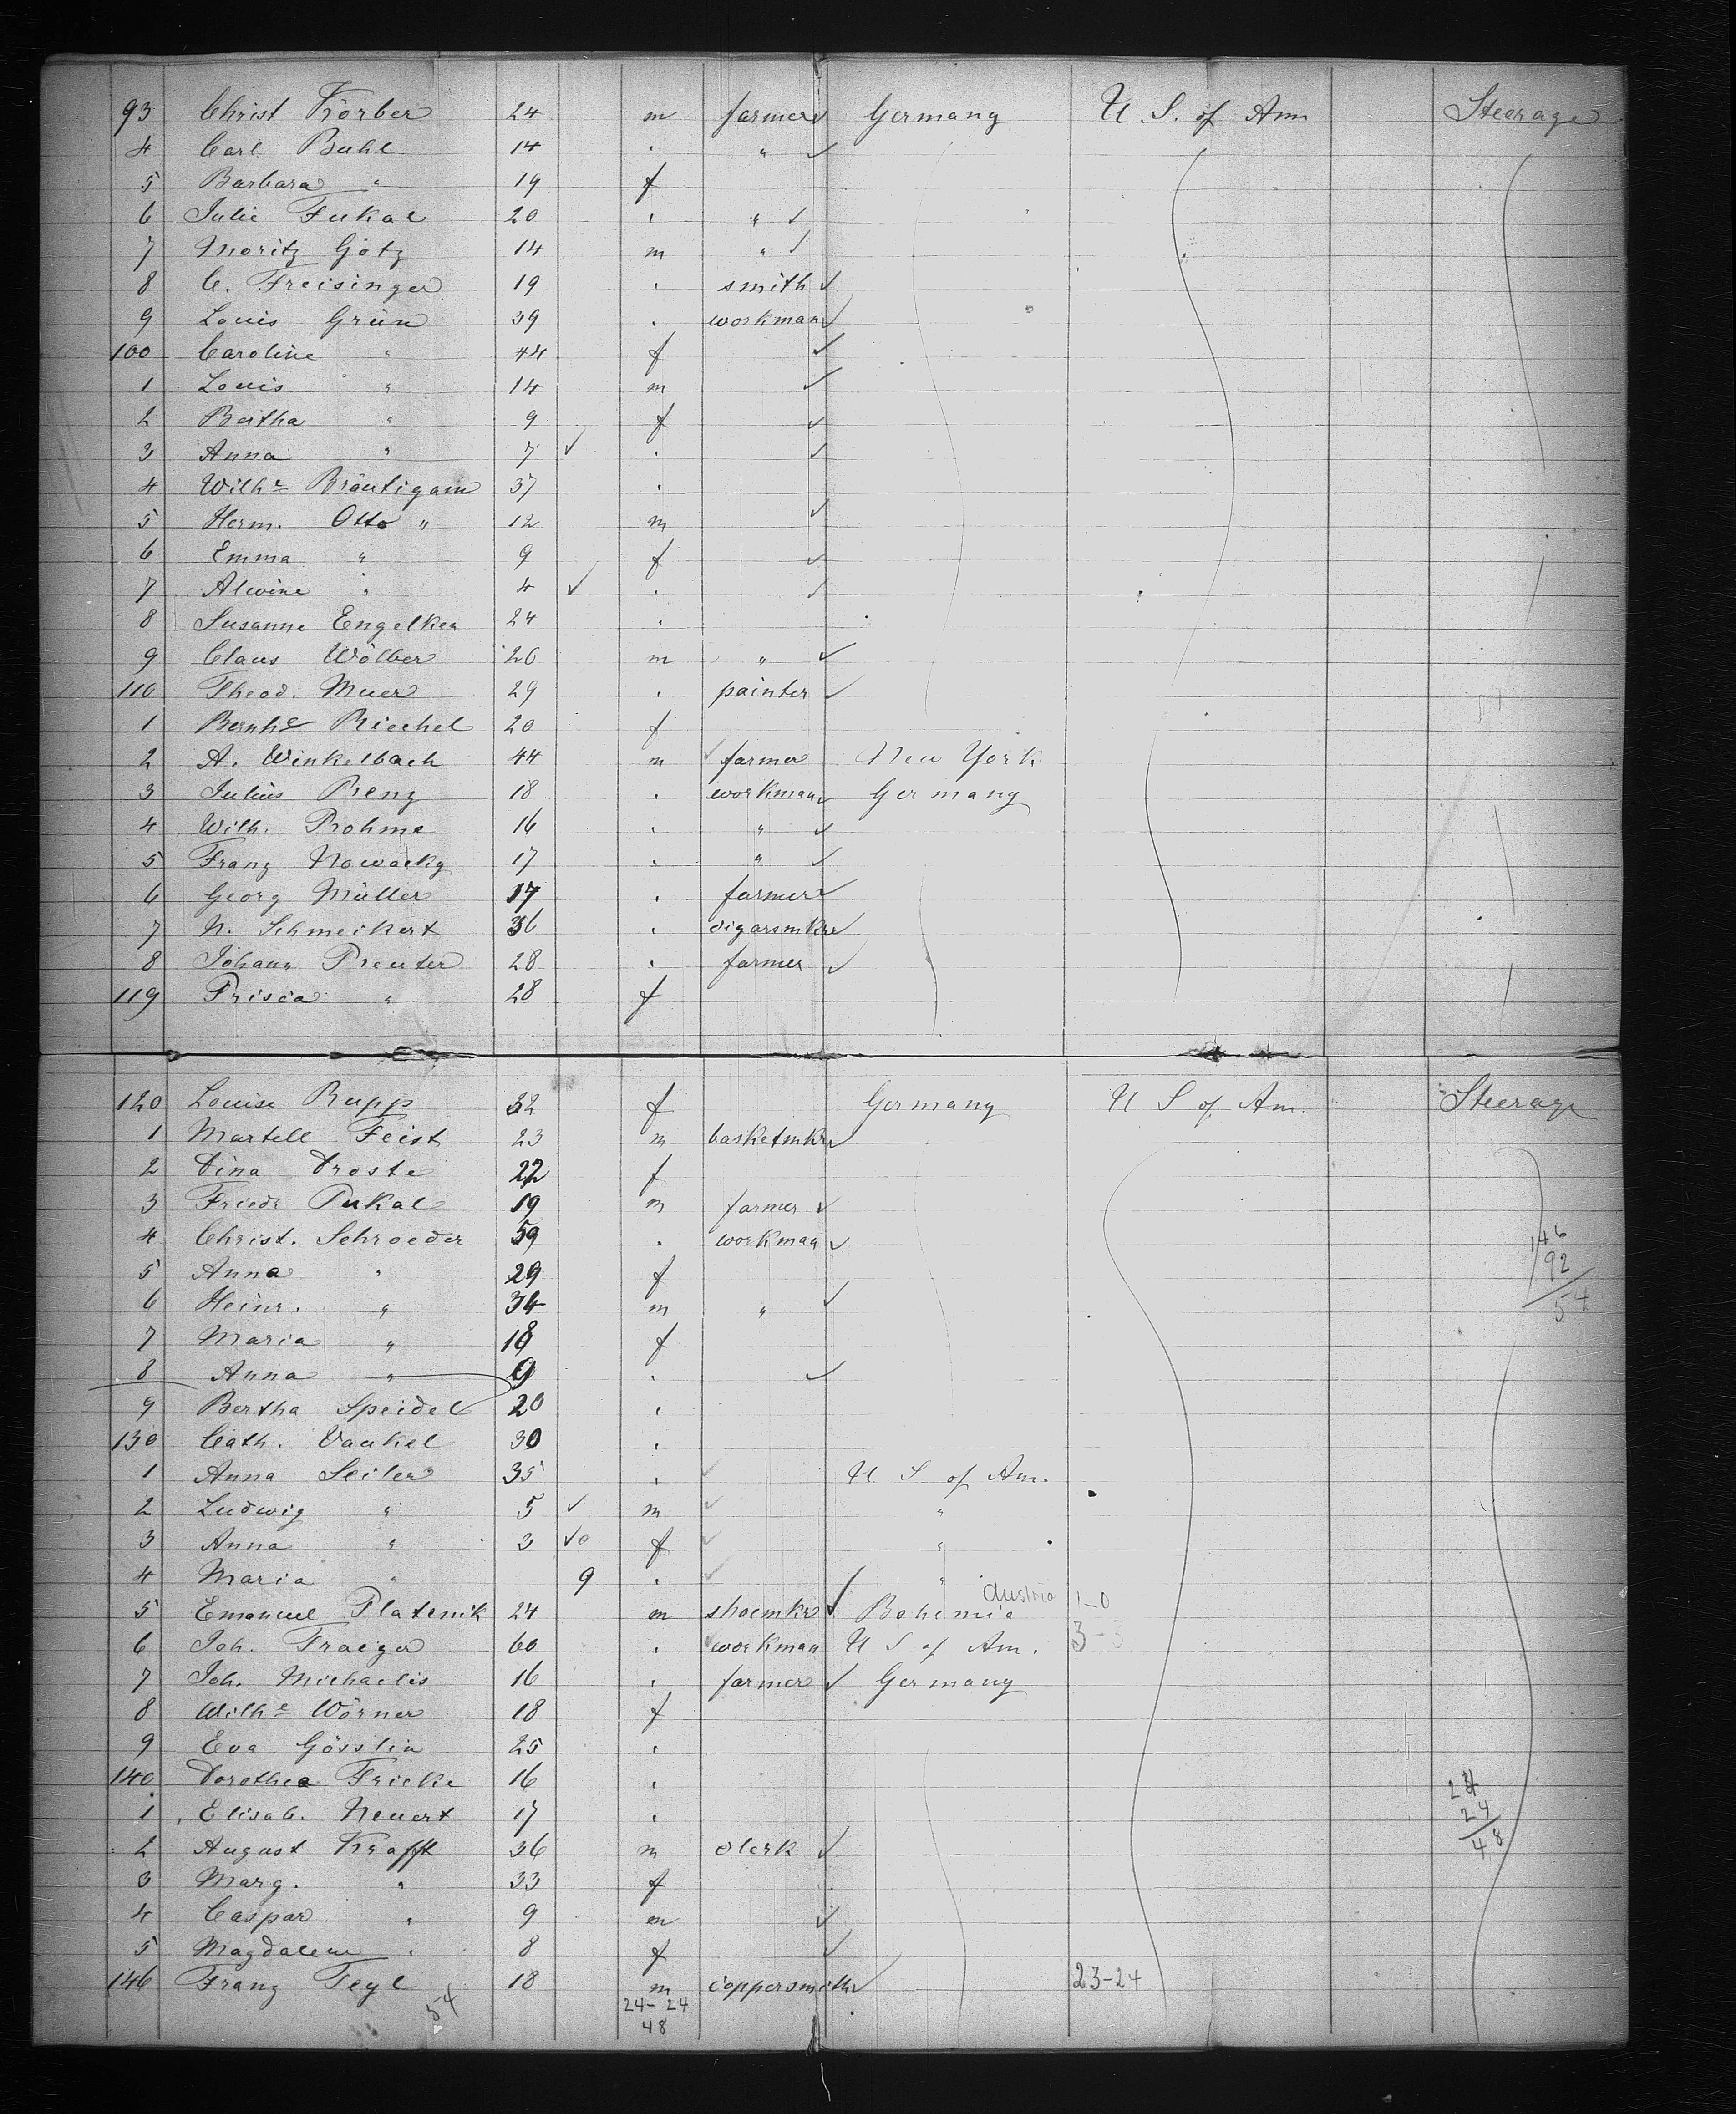 93 Christ Körber 24 m farmer ✓ Germany U. S. of Am Steerage
4 Carl Buhl 14 " " ✓
5 Barbara " 19 f
6 Julie Fukal 20 " " ✓
7 Moritz Götz 14 m " ✓
8 C. Freisinger 19 " smith ✓
9 Louis Grün 39 " workman ✓
100 Caroline " 44 f ✓
1 Louis " 14 m ✓
2 Bertha " 9 f ✓
3 Anna " 7 ✓ " ✓
4 Wilhe Bräutigam 37 "
5 Herm. Otto " 12 m ✓
6 Emma " 9 f ✓
7 Alwine " 4 ✓ " ✓
8 Susanne Engelken 24 "
9 Claus Wölber 26 m " ✓
110 Theod. Muer 29 " painter ✓
1 Bernhe Riechel 20 f
2 A. Winkelbach 44 m ✓ farmer New York
3 Julius Renz 18 " workman ✓ Germany
4 Wilh. Rohme 16 " " ✓
5 Franz Nowacky 17 " " ✓
6 Georg Müller 17 " farmer ✓
7 N. Schmeikert 36 " cigarsmkr ✓
8 Johann Preuter 28 " farmer ✓
119 Prisca " 28 f
120 Louise Rupp 32 f Germany U S of Am. Steerage
1 Martell Feist 23 m basketmkr ✓
2 Dina Droste 22 f
3 Friedr Pukal 19 m farmer ✓
4 Christ. Schroeder 59 " workman ✓ 146
5 Anna " 29 f 92
6 Heinr. " 34 m " ✓ 54
7 Maria " 18 f
8 Anna " 9 " ✓
9 Bertha Speidel 20 "
130 Cath. Vaukel 30 "
1 Anna Seiler 35 " ✓ U S of Am.
2 Ludwig " 5 ✓ m ✓ "
3 Anna " 3 ✓o f ✓ "
4 Maria " 9 " ✓ "
5 Emanuel Platenik 24 m shoemkr ✓ Bohemia Austria 1-0
6 Joh. Traeger 60 " ✓ workman U S of Am. 3-
7 Joh. Michaelis 16 " farmer ✓ Germany
8 Wilhe Wörner 18 f
9 Eva Gösslin 25 "
140 Dorothea Fricke 16 " 24
1 Elisab. Neuert 17 " 24
2 August Krafft 36 m clerk ✓ 48
3 Marg. " 33 f
4 Caspar " 9 m ✓
5 Magdalene " 8 f ✓
146 Franz Teyl 18 m coppersmith ✓ 23-24
54 24-24
48